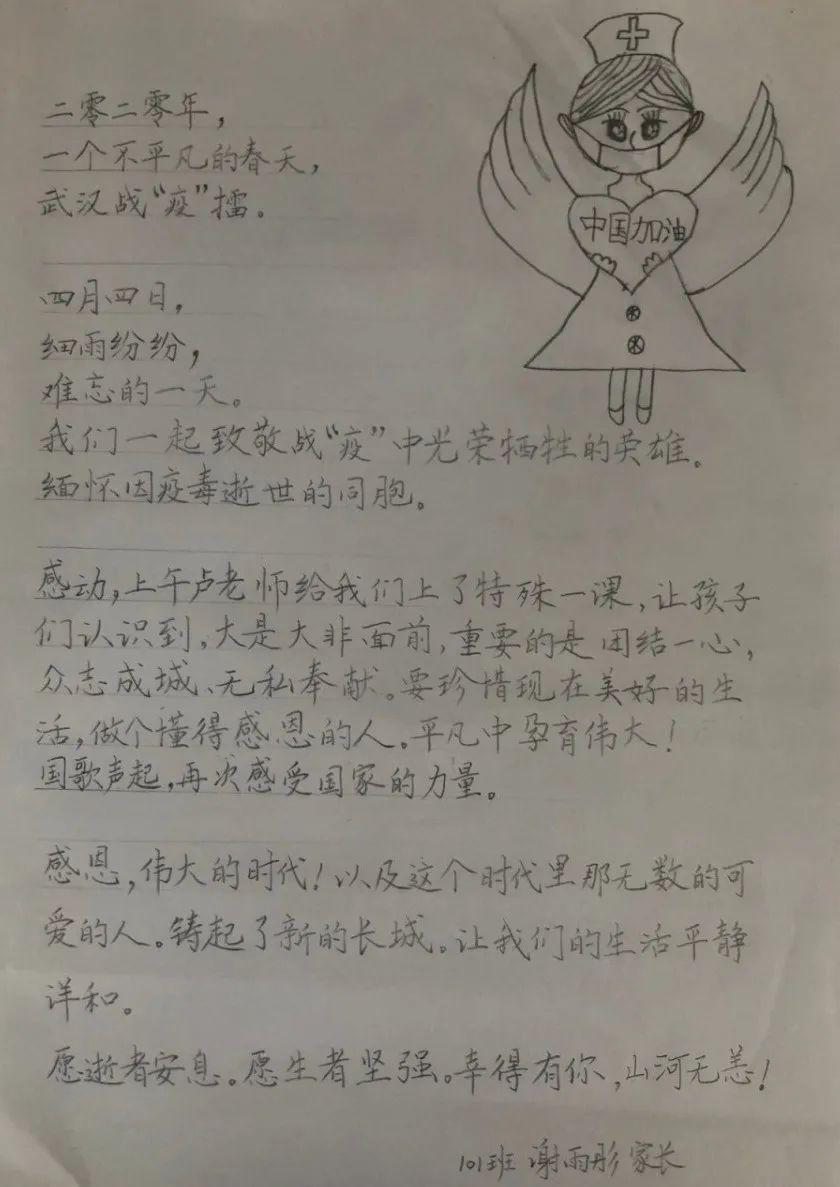 二零二零年，
一个不平凡的春天，
武汉战“疫”擂。
中国加油
四月四日，
细雨纷纷，
难忘的一天。
我们一起致敬战“疫”中光荣牺牲的英雄。
缅怀因疫毒逝世的同胞。
感动，上午卢老师给我们上了特殊一课，让孩子
们认识到，大是大非面前，重要的是团结一心，
众志成城、无私奉献。要珍惜现在美好的生
活，做个懂得感恩的人。平凡中孕育伟大！
国歌声起，再次感受国家的力量。
感恩，伟大的时代！以及这个时代里那无数的可
爱的人。铸起了新的长城。让我们的生活平静
洋和。
愿逝者安息。愿生者坚强。幸得有你，山河无恙！
101班 谢雨彤家长